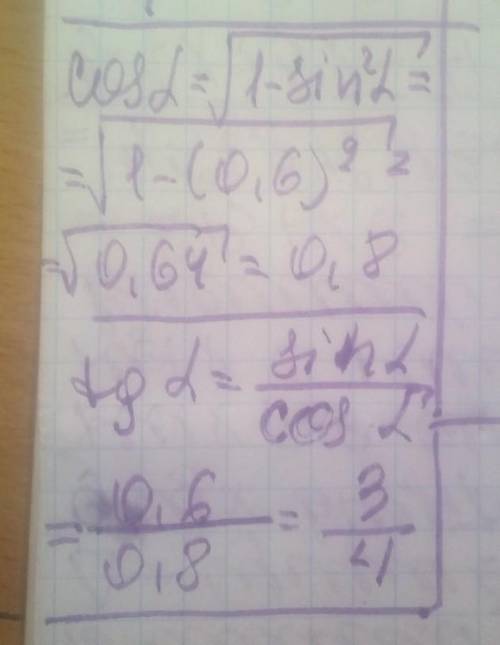 cos α = √1-sin²α =
= √1-(0,6)² =
= √0,64 = 0,8
tg α = sin α / cos α
= 0,6 / 0,8 = 3 / 4